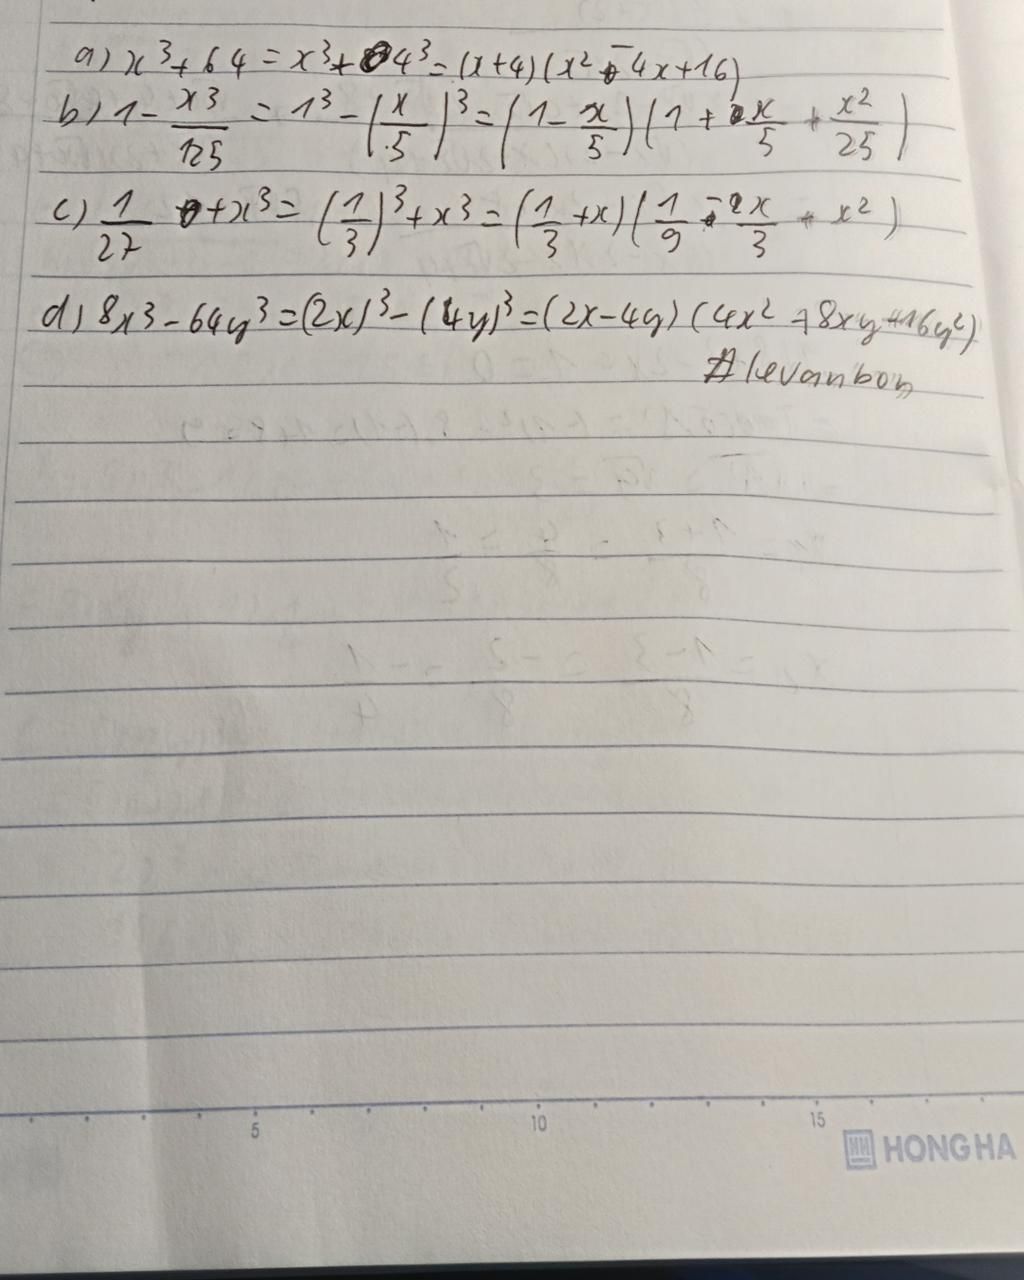 a) x³+64 = x³+4³ = (x+4)(x²-4x+16)
b) 1-x³/125 = 1³-(x/5)³ = (1-x/5)(1+x/5+x²/25)
c) 1/27+x³ = (1/3)³+x³ = (1/3+x)(1/9-x/3+x²)
d) 8x³-64y³ = (2x)³-(4y)³ = (2x-4y)(4x²+8xy+16y²)
#levanbon
5 10 15
HONG HA